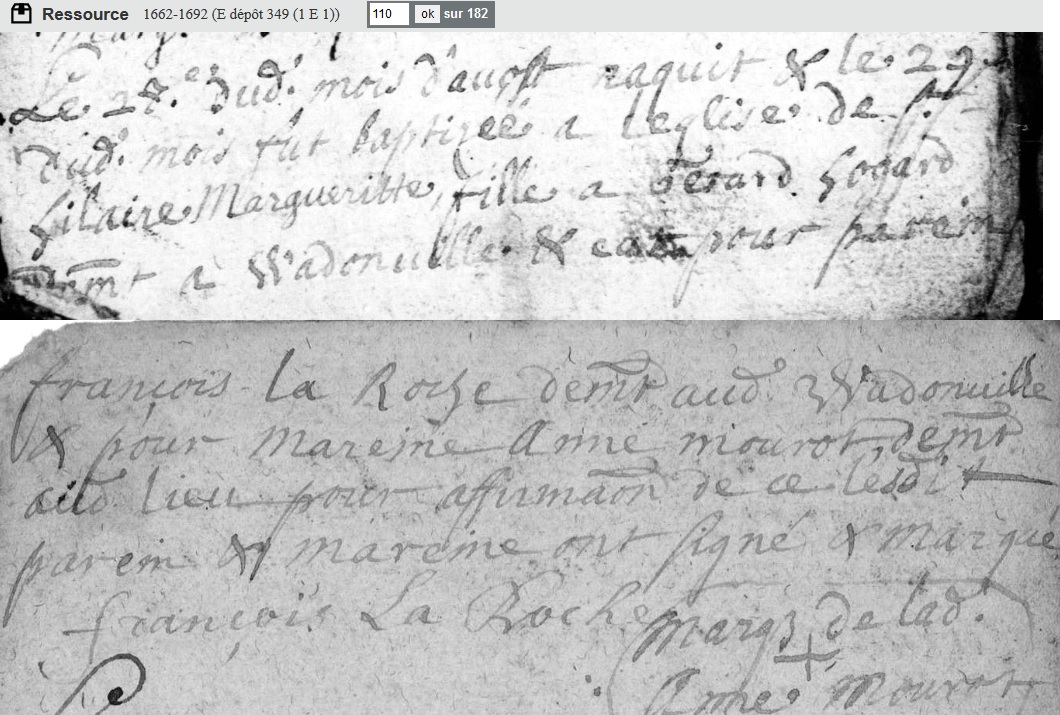 Ressource 1662-1692 (E dépôt 349 (1 E 1)) 110 ok sur 182
Le 28e. dud. mois d'auost naquit & le 29
dud. mois fut baptizée a Leglise de St
hilaire Margueritte, fille a Gerard
demt a Wadonuille & eut pour parein
françois la Roche demt aud Wadonuille
& pour mareine Anne mourot demt
aud lieu pour affirmaon de ce lesdit
parein & mareine ont signé & marque
françois La Roche marq3 de lad.
Anne Mourot